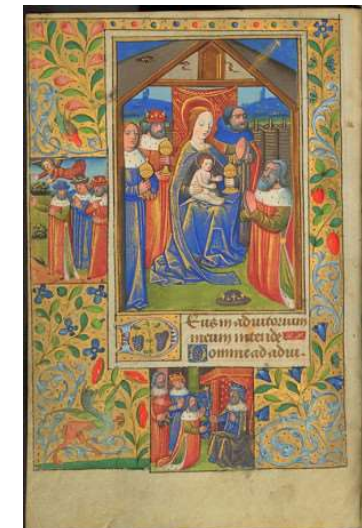 Deus in adiutorium
meum intende
Domine ad adiu-